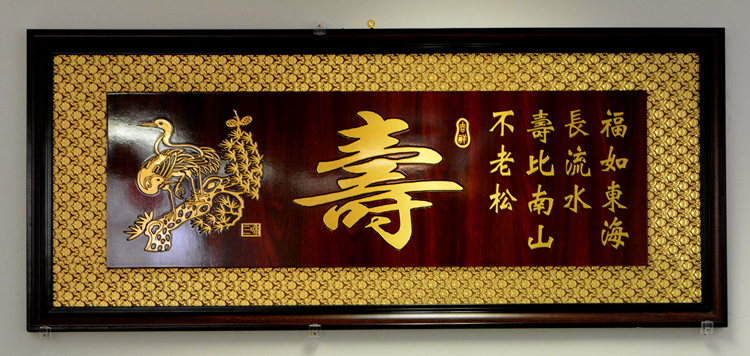 福如東海
長流水
壽比南山
不老松
吉祥
壽